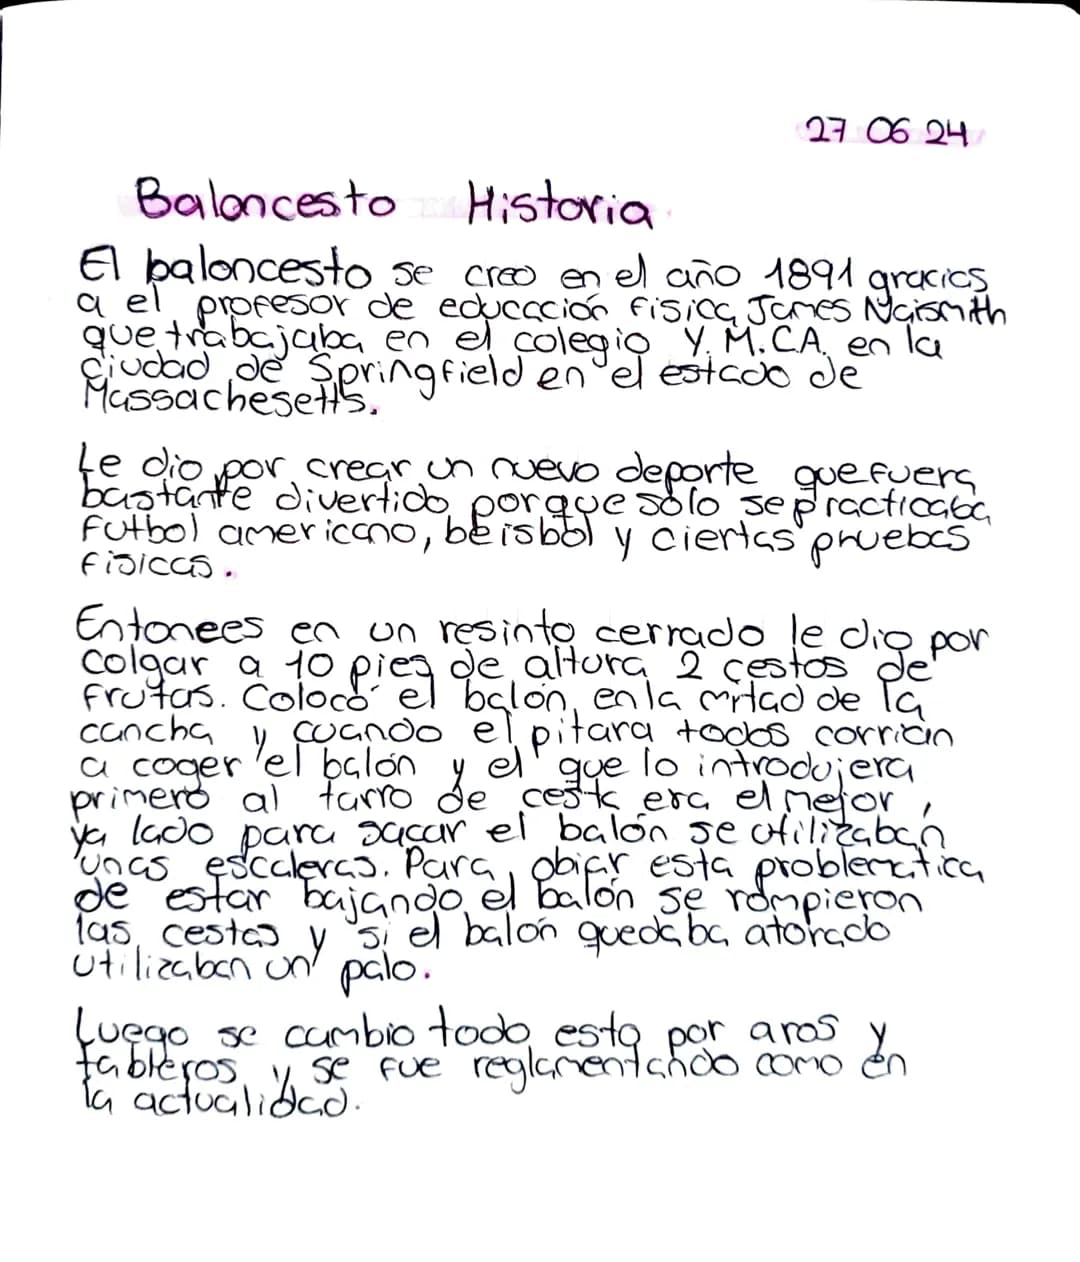 27 06 24
Baloncesto Historia
El baloncesto se creo en el año 1891 gracias
a el profesor de educación fisica James Naismith
que trabajaba en el colegio Y.M.C.A. en la
ciudad de Springfield en el estado de
Massachesetts.
Le dio por crear un nuevo deporte que fuera
bastante divertido porque sólo se practicaba
futbol americano, beisbol y ciertas pruebas
fisicas.
Entonees en un resinto cerrado le dio por
colgar a 10 pies de altura 2 cestos de
frutas. Colocó el balón en la mitad de la
cancha y cuando el pitara todos corrian
a coger el balón y el que lo introdujera
primero al tarro de cesta era el mejor,
ya lado para sacar el balón se utilizaban
unas escaleras. Para obiar esta problematica
de estar bajando el balón se rompieron
las cestas y si el balón quedaba atorado
utilizaban un palo.
Luego se cambio todo esto por aros y
tableros y se fue reglamentando como en
la actualidad.